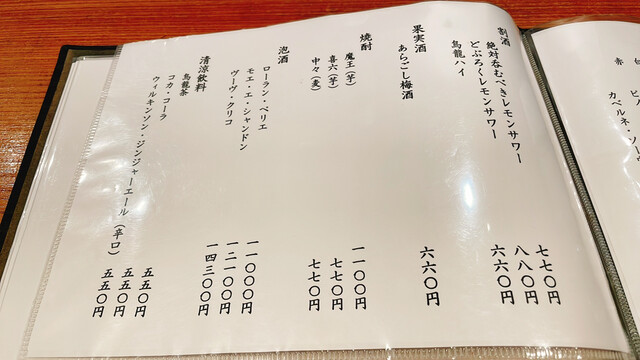 割酒
絶対呑むべきレモンサワー 七七〇円
どぶろくレモンサワー 八八〇円
烏龍ハイ 六六〇円
果実酒
あらごし梅酒 六六〇円
焼酎
魔王（芋） 一一〇〇円
喜六（芋） 七七〇円
中々（麦） 七七〇円
泡酒
ローラン・ペリエ 一一〇〇〇円
モエ・エ・シャンドン 一二一〇〇円
ヴーヴ・クリコ 一四三〇〇円
清涼飲料
烏龍茶 五五〇円
コカ・コーラ 五五〇円
ウィルキンソン・ジンジャーエール（辛口） 五五〇円
赤
白
ピノ
カベルネ・ソー